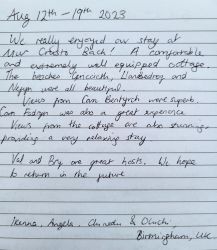 Aug 12th - 19th 2023
We really enjoyed our stay at
Bach! A comfortable
and extremely well equipped cottage.
The beaches Llanbedrog and
Nefyn were all beautiful.
Views from were superb.
was also a great experience
Views from the cottage are also stunning,
providing a very relaxing stay
Val and Bry are great hosts. We hope
to return in the future
Angela, & 
Birmingham, UK